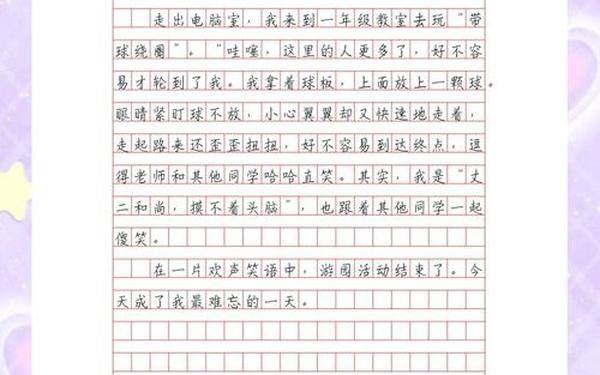 走出电脑室，我来到一年级教室去玩“带
球绕圈”。“哇噻，这里的人更多了，好不容
易才轮到了我。我拿着球板，上面放上一颗球。
眼睛紧盯球不放，小心翼翼却又快速地走着，
走起路来还歪歪扭扭，好不容易到达终点，逗
得老师和其他同学哈哈直笑。其实，我是“丈
二和尚，摸不着头脑”，也跟着其他同学一起
傻笑。
在一片欢声笑语中，游园活动结束了。今
天成了我最难忘的一天。